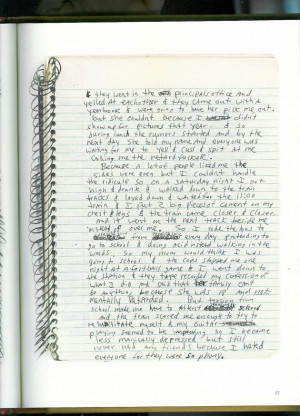 & they went in the principals office and
yelled at eachother & they came out with a
yearbook & were going to have her pick me out.
but she couldnt because I didnt
show up for pictures that year. & so
during lunch the rumors started and by the
next day She told my name and everyone was
waiting for me to yell & cuss & spit at me
calling me the retard
Because a lot of people liked me
were even but I couldnt handle
the ridicule so on a saturday night I got
high & drunk & walked down to the train
tracks & layed down & waited for the 11:00
train & I put 2 big pieces of cement on my
chest & legs & the train came closer & closer.
And it went on the next track beside me
instead of over me. So I rode the bus to
every day pretending to
go to school & doing acid instead walking in the
woods. So my mom would think I was
going to school. & the cops stopped me one
night at a football game & I went down to
the station & they tape recorded my confession of
what I did and said that her family cant
do anything because she was 18 and not
mentally retarded. But tension from
school made me have to attend school
and the train scared me enough to try to
rehabilitate myself & my guitar
playing seemed to be improving so I became
less manically depressed but still
never had any friends because I hated
everyone for they were so phony.